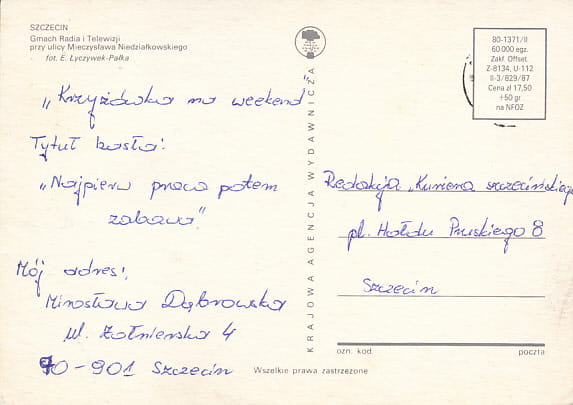 SZCZECIN
Gmach Radia i Telewizji
przy ulicy Mieczysława Niedziałkowskiego
fot. E. Łyczywek-Pałka
„Krzyżówka na weekend”
Tytuł hasła:
„Najpierw praca potem
zabawa”.
Mój adres:
Mirosława Dąbrowska
ul. Żołnierska 4
70-901 Szczecin
KRAJOWA AGENCJA WYDAWNICZA
80-1371/II
60 000 egz.
Zakł. Offset.
Z-8134, U-112
II-3/829/87
Cena zł 17,50
+50 gr
na NFOZ
Redakcja „Kuriera szczecińskiego
pl. Hołdu Pruskiego 8
Szczecin
ozn. kod.
poczta
Wszelkie prawa zastrzeżone